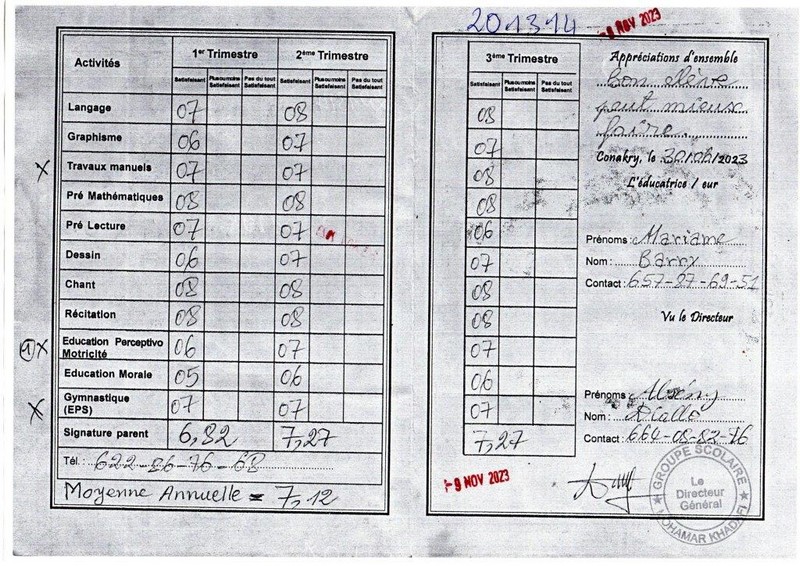 201314
9 NOV 2023
Activités
1er Trimestre 2ème Trimestre
Satisfaisant Plus ou moins Satisfaisant Pas du tout Satisfaisant Satisfaisant Plus ou moins Satisfaisant Pas du tout Satisfaisant
Langage 07 08
Graphisme 06 07
X Travaux manuels 07 07
Pré Mathématiques 08 08
Pré Lecture 07 07
Dessin 06 07
Chant 08 08
Récitation 08 08
1 X Education Perceptivo Motricité 06 07
Education Morale 05 06
X Gymnastique (EPS) 07 07
Signature parent 6,82 7,27
Tél. : 622-26-76-68
Moyenne Annuelle = 7,12
3ème Trimestre
Satisfaisant Plus ou moins Satisfaisant Pas du tout Satisfaisant
08
07
08
08
06
07
08
08
07
06
07
7,27
-9 NOV 2023
Appréciations d'ensemble
Bon élève
peut mieux
faire
Conakry, le 30/06/2023
L'éducatrice / eur
Prénoms : Mariame
Nom : Barry
Contact : 657-27-69-51
Vu le Directeur
Prénoms :
Nom : Diallo
Contact : 664-08-82-76
GROUPE SCOLAIRE
Le
Directeur
Général